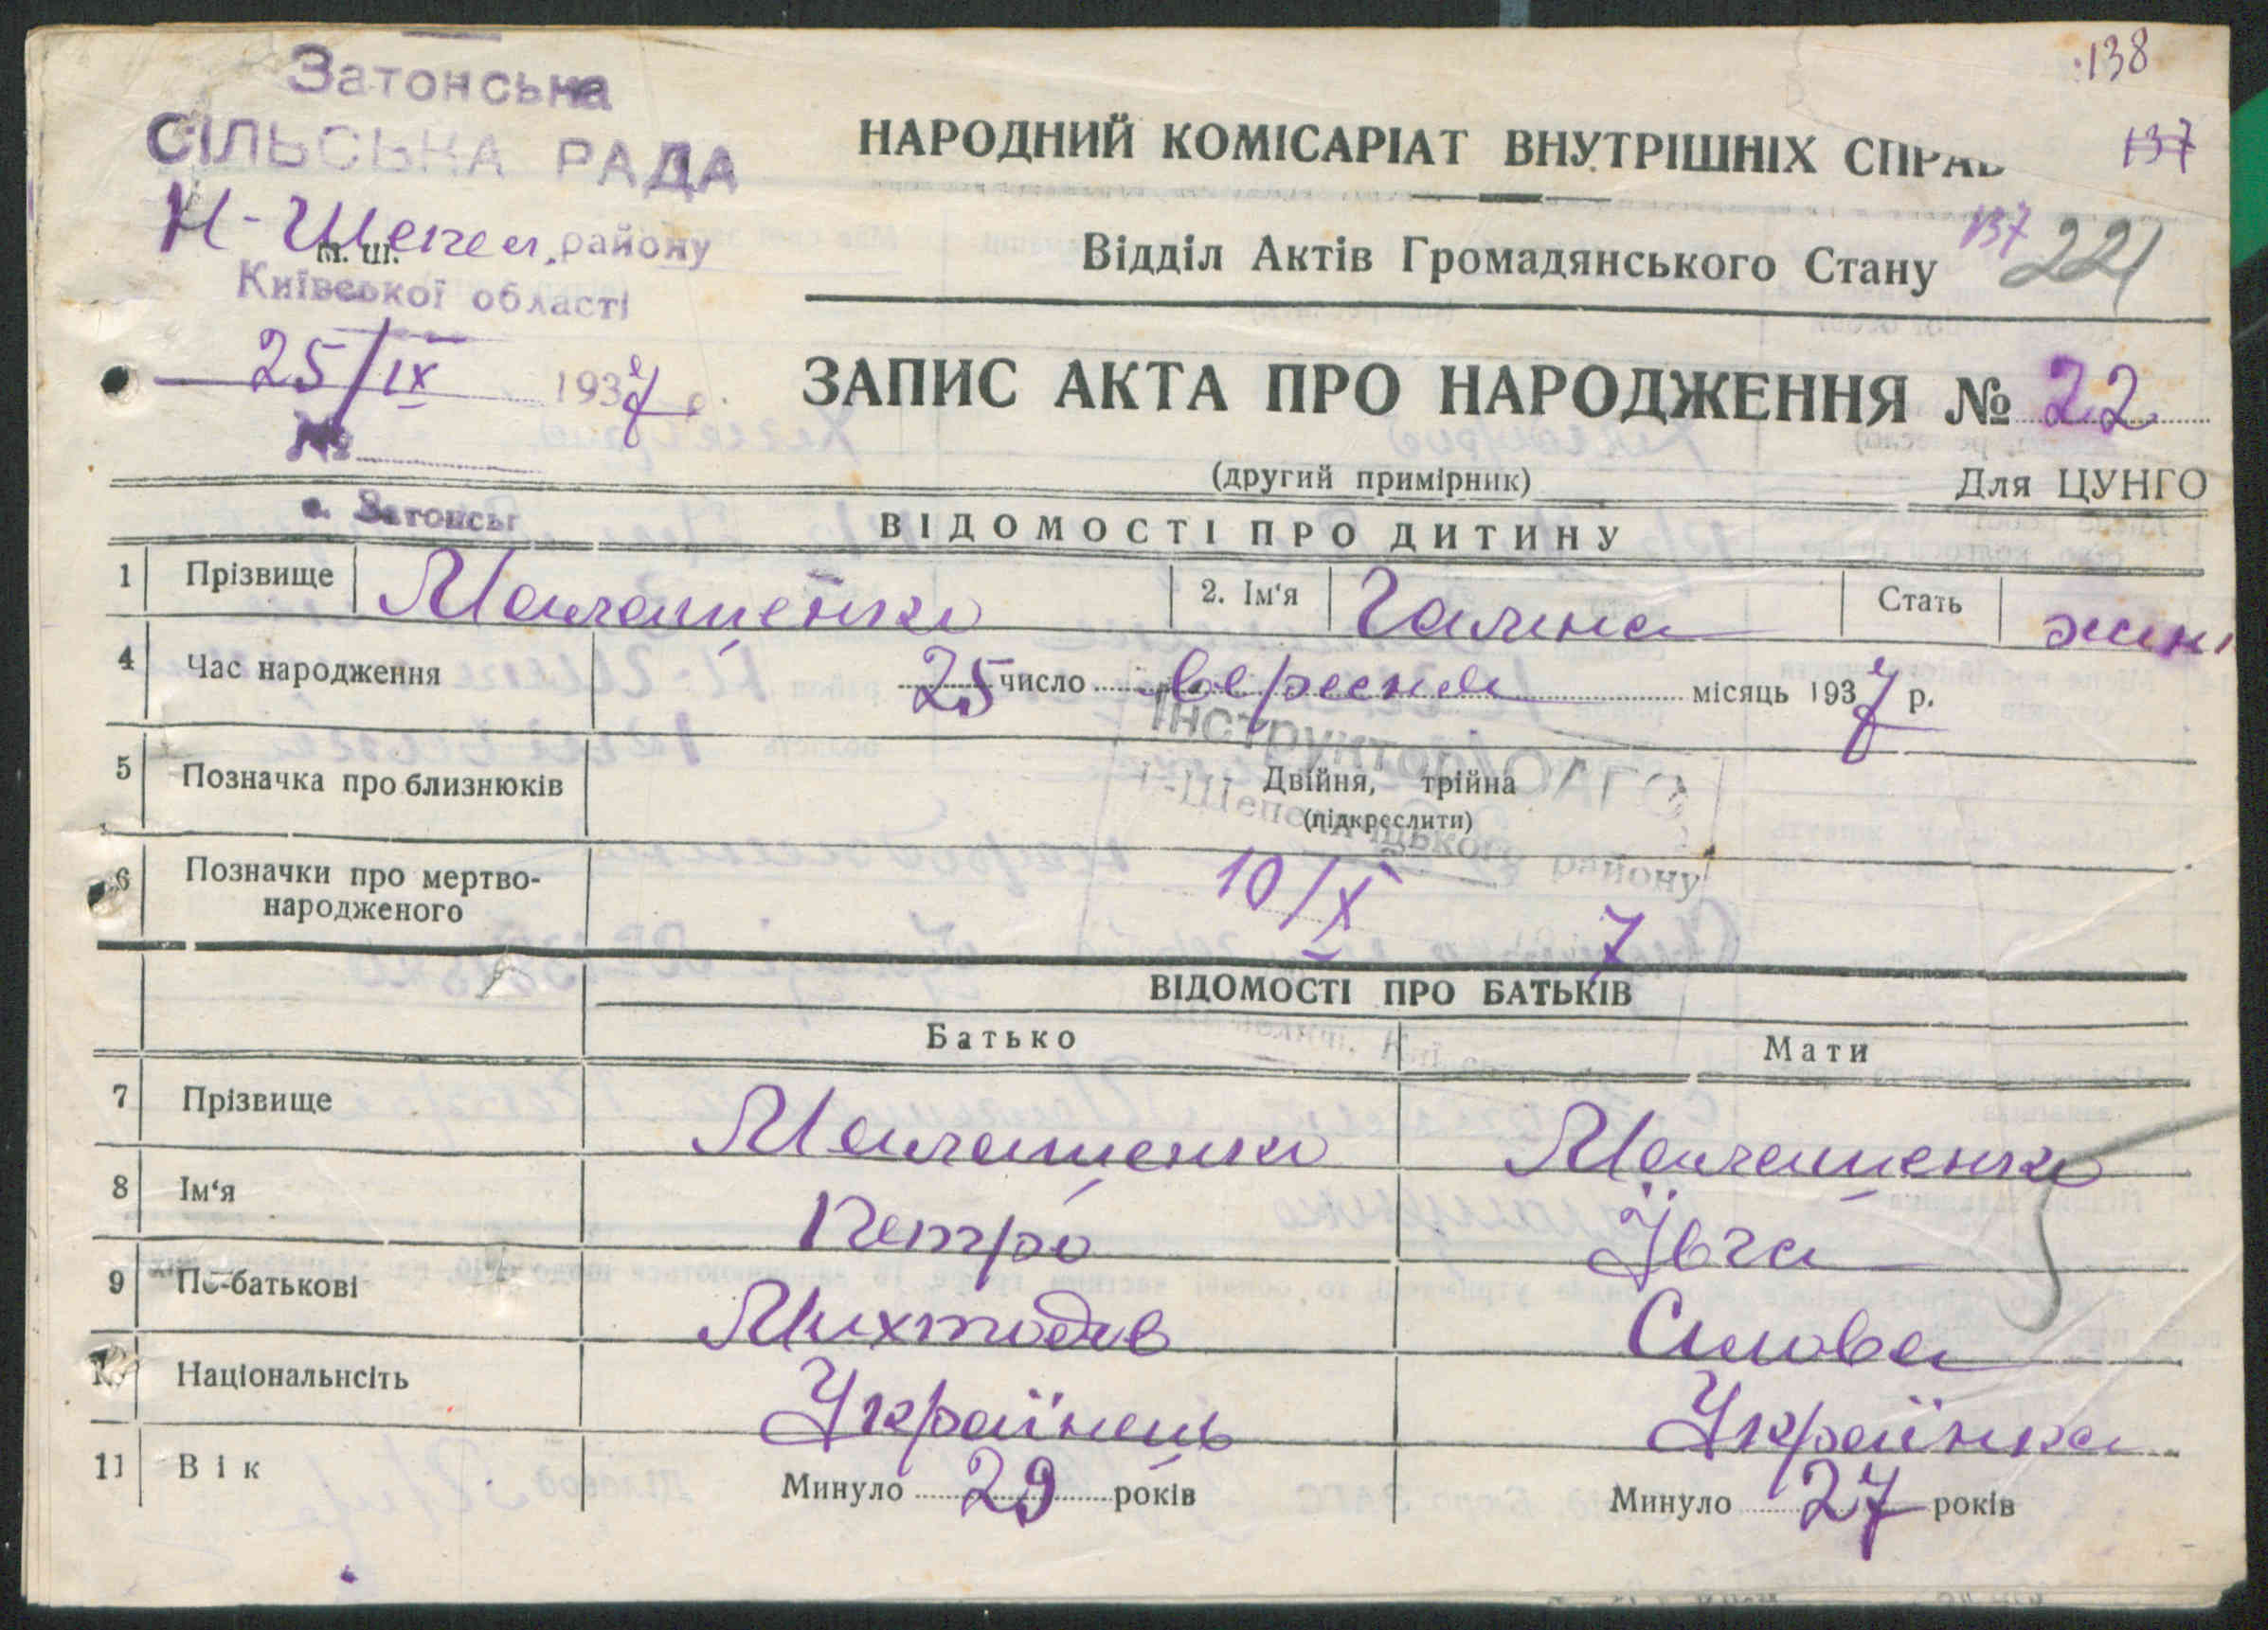 138
Затонська
СІЛЬСЬКА РАДА
137
НАРОДНИЙ КОМІСАРІАТ ВНУТРІШНІХ СПРАВ
Н-Шепел. району
м. ш.
Київської області
137 221
Відділ Актів Громадянського Стану
25/IX 1937 р.
ЗАПИС АКТА ПРО НАРОДЖЕННЯ № 22
№
(другий примірник) Для ЦУНГО
с. Затонськ
ВІДОМОСТІ ПРО ДИТИНУ
1 Прізвище Малашенко 2. Ім'я Галина Стать жін
4 Час народження 25 число вересня місяць 1937 р.
Інструктор ОАГС
5 Позначка про близнюків Двійня, трійна
(підкреслити)
району
6 Позначки про мертво-
народженого
10/X 7
ВІДОМОСТІ ПРО БАТЬКІВ
Батько Мати
7 Прізвище Малашенко Малашенко
8 Ім'я Петро Ївга
9 По-батькові Михтодів Силова
10 Національнсіть Українець Українка
11 Вік Минуло 29 років Минуло 27 років